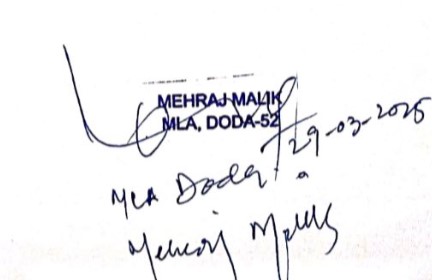 MEHRAJ MALIK
MLA, DODA-52
29-03-2025
MLA Doda
Mehraj Malik